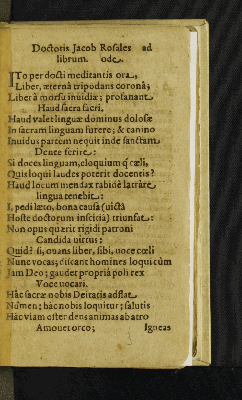 Doctoris Jacob Rosales ad
librum. ode.
ITo per docti meditantis ora,
Liber, æternâ tripodans coronâ;
Liber à morsu invidiæ; profanant
Haud sacra sacri.
Haud valet linguæ dominus dolosæ
In sacram linguam furere; & canino
Invidus partem nequit inde sanctam
Dente ferire:
Si doces linguam, eloquium q; cœli,
Quis loqui laudes poterit docentis?
Haud locum mendax rabidè latràre
lingua tenebit:
I, pedi læto, bona causa (victâ
Hoste doctorum inscitiâ) triumfat:
Non opus quærit rigidi patroni
Candida virtus:
Quid? si, ovans liber, sibi, voce cœli
Nunc vocas; discant homines loqui cùm
Jam Deo; gaudet propriâ poli rex
Voce vocari.
Hâc sacræ nobis Deitatis adflat
Numen: hâc nobis loquitur; salutis
Hâc viam ostendens animas ab atro
Amovet orco; Igneas
3